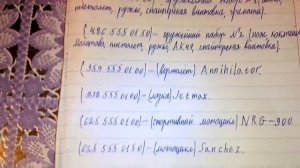 пистолет, ружьё, снайперская винтовка, гранаты).
(486 555 01 50) – оружейный набор №2. (нож, коктейли
Молотова, пистолет, ружьё, АК47, снайперская винтовка).
(359 555 01 00) – (вертолёт) Annihilator.
(938 555 01 00) – (лодка) Jetmax.
(625 555 01 00) – (спортивный мотоцикл) NRG-900.
(625 555 01 50) – (мотоцикл) Sanchez.